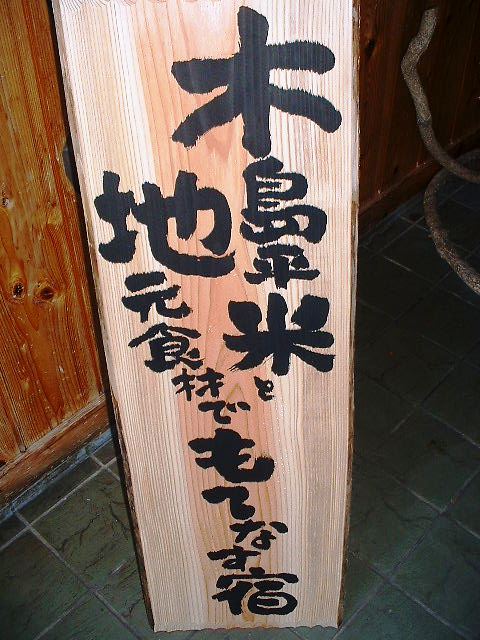 木島平米と
地元食材でもてなす宿